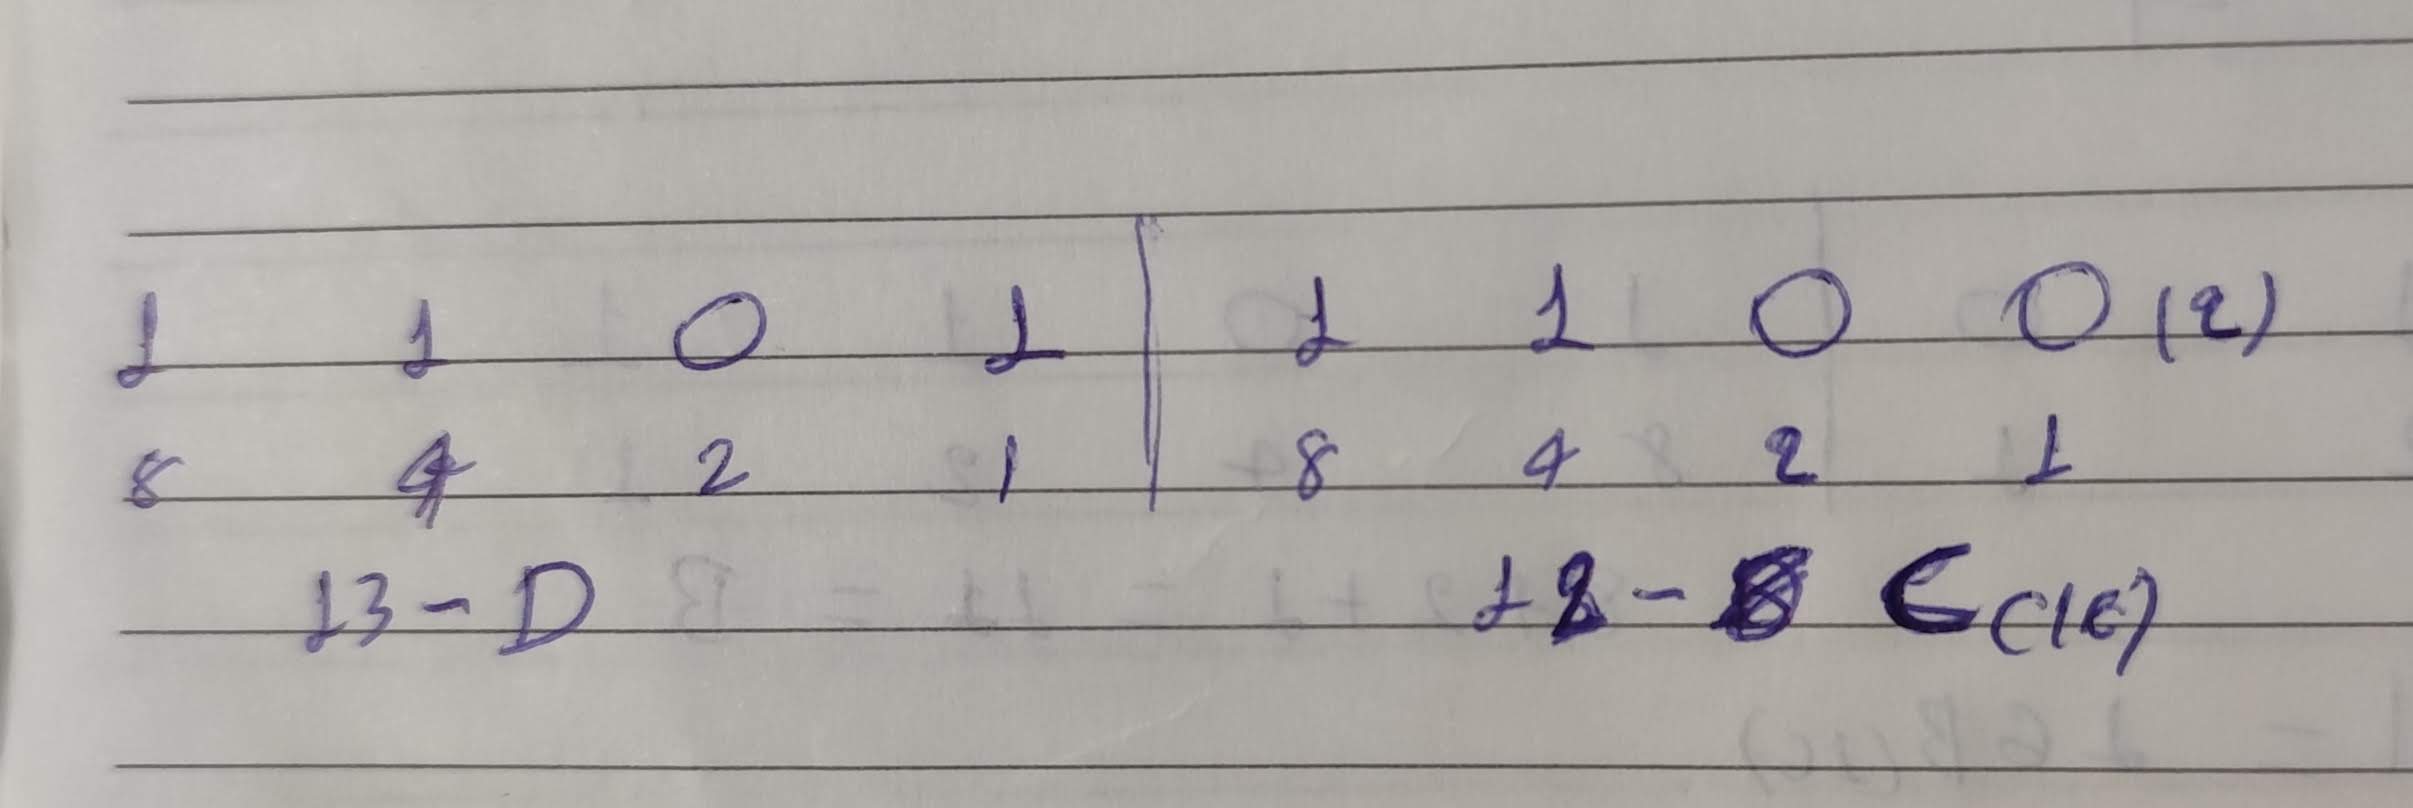 1 1 0 1 | 1 1 0 0 (2)
8 4 2 1 | 8 4 2 1
13 - D 12 - C (16)